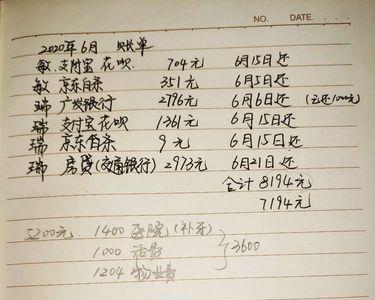 NO. DATE.
2020年6月 账单
敏 支付宝 花呗 704元 6月15日还
敏 京东白条 351元 6月5日还
瑞 广发银行 2796元 6月6日还 (已还1000元)
瑞 支付宝花呗 1361元 6月15日还
瑞 京东白条 9元 6月15日还
瑞 房贷(交通银行) 2973元 6月21日还
合计 8194元
7194元
5200元 1400 医院(补牙)
1000 话费 3600
1204 物业费